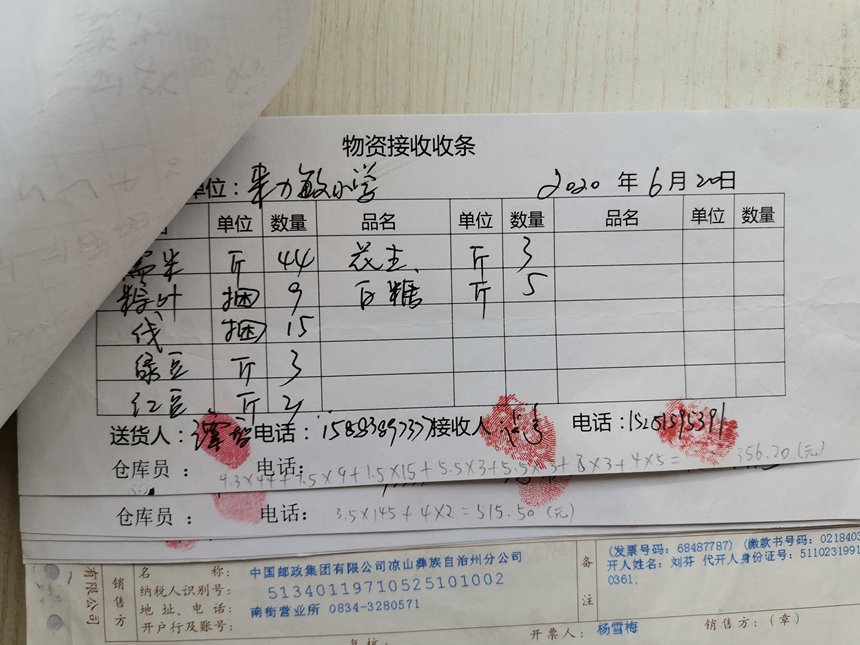 物资接收收条
单位：来力敏小学 2020 年 6 月 20 日
单位 数量 品名 单位 数量 品名 单位 数量
糯米 斤 44 花生 斤 3
粽叶 捆 9 白糖 斤 5
线 捆 15
绿豆 斤 3
红豆 斤
送货人： 电话： 接收人 电话：
仓库员： 电话： 4.3×44+7.5×9+1.5×15+5.5×3+5.5×3+8×3+4×5= 356.20(元)
仓库员： 电话： 3.5×145+4×2=515.50(元)
有限公司
销售方
名 称： 中国邮政集团有限公司凉山彝族自治州分公司
纳税人识别号： 513401197105251010​02
地 址、电 话： 南街营业所 0834-3280571
开户行及账号：
备注
(发票号码：68487787) (缴款书号码：0218403
开人姓名：刘芬 代开人身份证号：5110231991
0361;
开票人： 杨雪梅 销售方：(章)